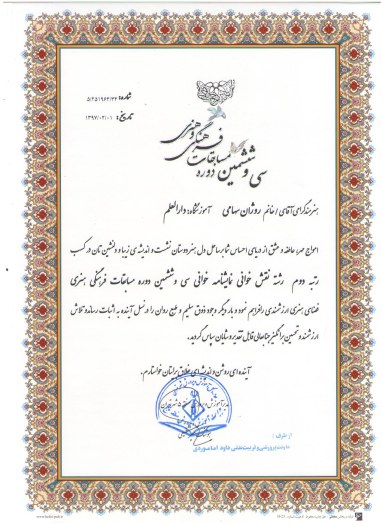 شماره: ۵/۲۵۱۹۶۳/۲۴
تاریخ: ۱۳۹۷/۰۲/۰۱
سی و ششمین دوره مسابقات فرهنگی و هنری
هنرمند گرامی آقای / خانم روژان سهامی آموزشگاه: دارالعلم
امواج مهر، عاطفه و عشق از دریای احساس شما بر ساحل دل هنردوستان نشست و اندیشه ی زیبا و دلنشین تان در کسب
رتبه دوم رشته نقش خوانی نمایشنامه خوانی سی و ششمین دوره مسابقات فرهنگی هنری
فضای هنری ارزشمندی را فراهم نمود و بار دیگر وجود ذوق سلیم و طبع روان را در نسل آینده به اثبات رساند و تلاش
ارزشمند و تحسین برانگیز جنابعالی قابل تقدیر و شایان سپاس گردید.
آینده ای روشن و اندیشه ای خلاق برایتان خواستارم.
از طرف: